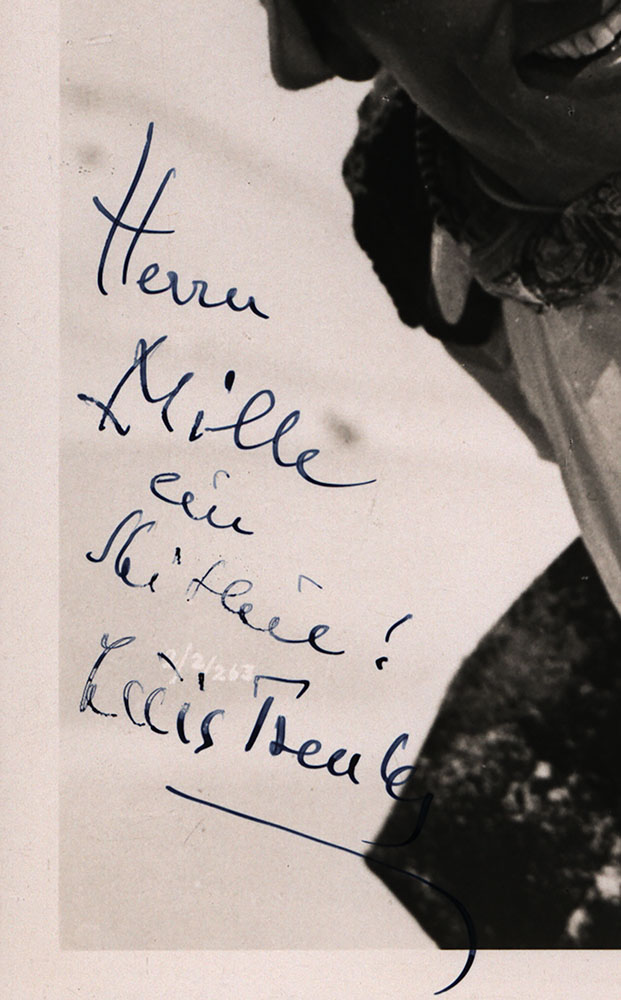 Herrn
Mille
ein
Ski Heil!
Luis Trenker